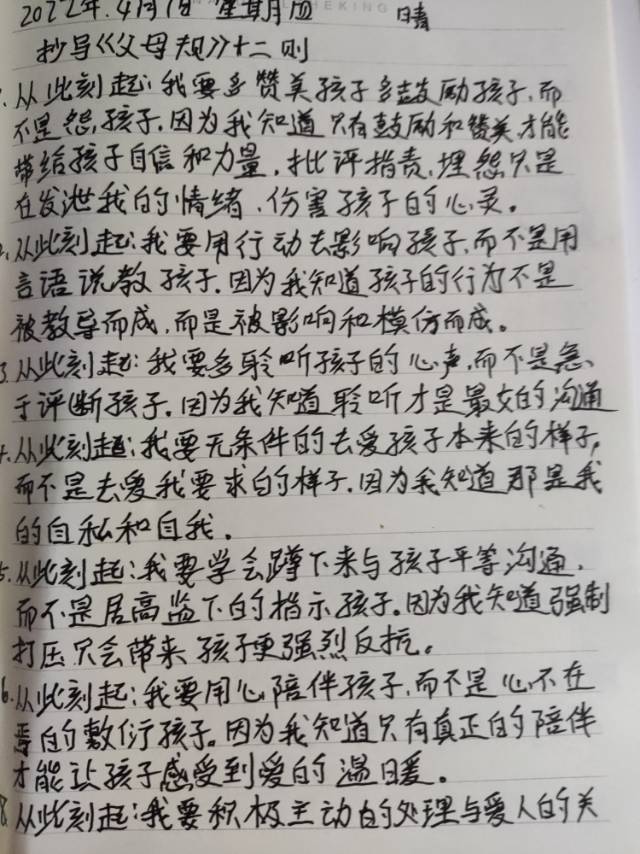 2022年.4月1日 星期四 晴
抄写《父母规》十二则
1.从此刻起:我要多赞美孩子多鼓励孩子,而
不是怨,孩子.因为我知道只有鼓励和赞美才能
带给孩子自信和力量,批评指责,埋怨只是
在发泄我的情绪、伤害孩子的心灵。
2,从此刻起:我要用行动去影响孩子,而不是用
言语说教孩子.因为我知道孩子的行为不是
被教导而成,而是被影响和模仿而成。
3.从此刻起:我要多聆听孩子的心声,而不是急
于评断孩子.因为我知道聆听才是最好的沟通
4.从此刻起:我要无条件的去爱孩子本来的样子,
而不是去爱我要求的样子.因为我知道那是我
的自私和自我。
5.从此刻起:我要学会蹲下来与孩子平等沟通,
而不是居高监下的指示孩子。因为我知道强制
打压只会带来孩子更强烈反抗。
6.从此刻起:我要用心陪伴孩子,而不是心不在
焉的敷衍孩子。因为我知道只有真正的陪伴
才能让孩子感受到爱的温暖。
8.从此刻起:我要积极主动的处理与爱人的关